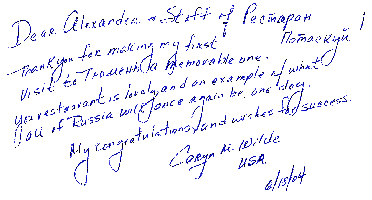 Dear Alexander & Staff of Ресторан
Потаскуй!
Thank you for making my first
visit to Тюмень a memorable one.
Your restaurant is lovely and an example of what
all of Russia will once again be one day.
My congratulations and wishes for success.
Caryn M. Wilde
USA
6/15/04